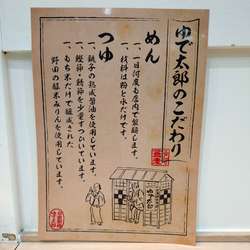 ゆで太郎のこだわり
めん
一、一日何度も店内で製麺します。
一、材料は粉と水だけです。
つゆ
一、銚子の熟成醤油を使用しています。
一、鰹節・鯖節を少量ずつひいています。
一、もち米だけで醸成された
野田の醸米みりんを使用しています。
ゆで太郎